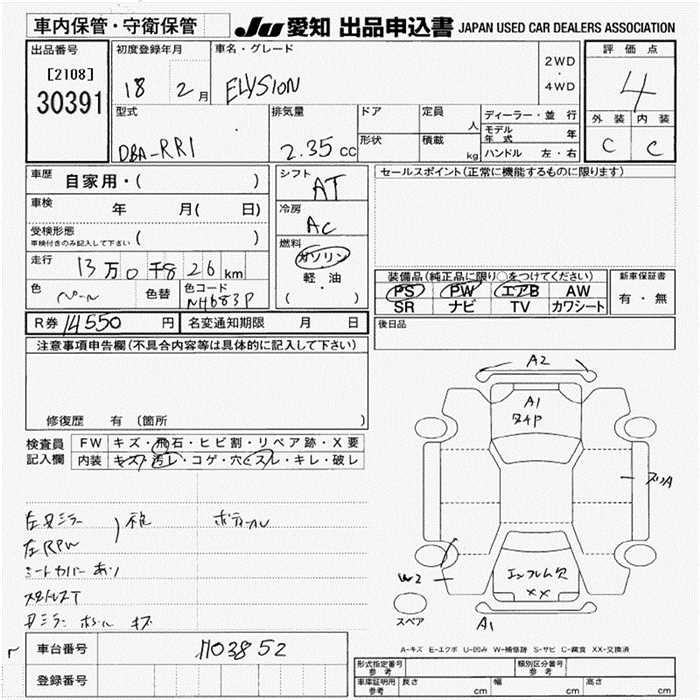 車内保管・守衛保管 JU 愛知 出品申込書 JAPAN USED CAR DEALERS ASSOCIATION
出品番号 初度登録年月 車名・グレード 評価点
[2108] 18 2月 ELYSION 2WD・4WD 4
30391
型式 排気量 ドア 定員 人 ディーラー・並行 外装 内装
形状 積載 kg モデル年式 年
DBA-RR1 2.35cc ハンドル 左・右 C C
車歴 自家用・( ) シフト AT セールスポイント(正常に機能するものに限ります)
車検 年 月( 日) 冷房 AC
受検形態 ( )
車検付きのみ記入して下さい
燃料 ガソリン
走行 13万0千826km 軽・油
( )
装備品(純正品に限り○をつけてください) 新車保証書
PS PW エアB AW 有・無
SR ナビ TV カワシート
色 パール 色替 色コード NH683P
R券 14550円 名変通知期限 月 日 後日品
注意事項申告欄(不具合内容等は具体的に記入して下さい)
修復歴 有 〔箇所 〕
検査員記入欄 FW キズ・飛石・ヒビ割・リペア跡・X要
内装 キズ・汚レ・コゲ・穴・スレ・キレ・破レ
A2
A1
W2
エンブレム欠
XX
A1
スペア
シートカバーあり
A-キズ E-エクボ U-凹み W-補修跡 S-サビ C-腐食 XX-交換済
車台番号 1103852
登録番号
形式指定番号 参考 類別区分番号 参考
車庫証明用 参考 長さ cm 幅 cm 高さ cm